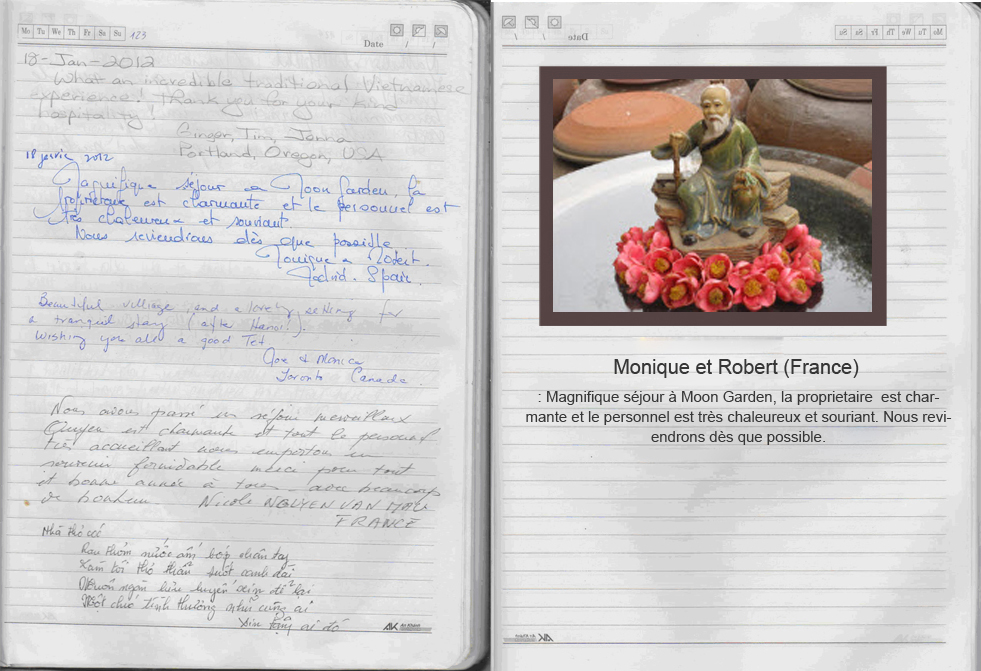 Mo Tu We Th Fr Sa Su 123
Date / /
18-Jan-2012
What an incredible traditional Vietnamese
experience! Thank you for your kind
hospitality!
Ginger, Tim, Jenna
Portland, Oregon, USA
18 janvier 2012
Magnifique séjour au Moon Garden, la
propriétaire est charmante et le personnel est
très chaleureux et souriant.
Nous reviendrons dès que possible
Monique et Robert.
Madrid. Spain.
Beautiful village and a lovely setting for
a tranquil stay (after Hanoi!).
Wishing you all a good Tet
Joe & Monica
Toronto Canada.
Nous avons passé un séjour merveilleux
est charmante et tout le personnel
très accueillant nous emportons un
souvenir formidable merci pour tout
et bonne année à tous avec beaucoup
de bonheur Nicole NGUYEN VAN
FRANCE
Nhà thổ cổ
Rau thơm nước ấm bóp chân tay
ngàn lưu luyến xin để lại
Một chút tình thương nhớ cùng ai
ai đó
AK An Khánh
Date / /
Mo Tu We Th Fr Sa Su
Monique et Robert (France)
: Magnifique séjour à Moon Garden, la proprietaire est char-
mante et le personnel est très chaleureux et souriant. Nous revi-
endrons dès que possible.
AK An Khánh